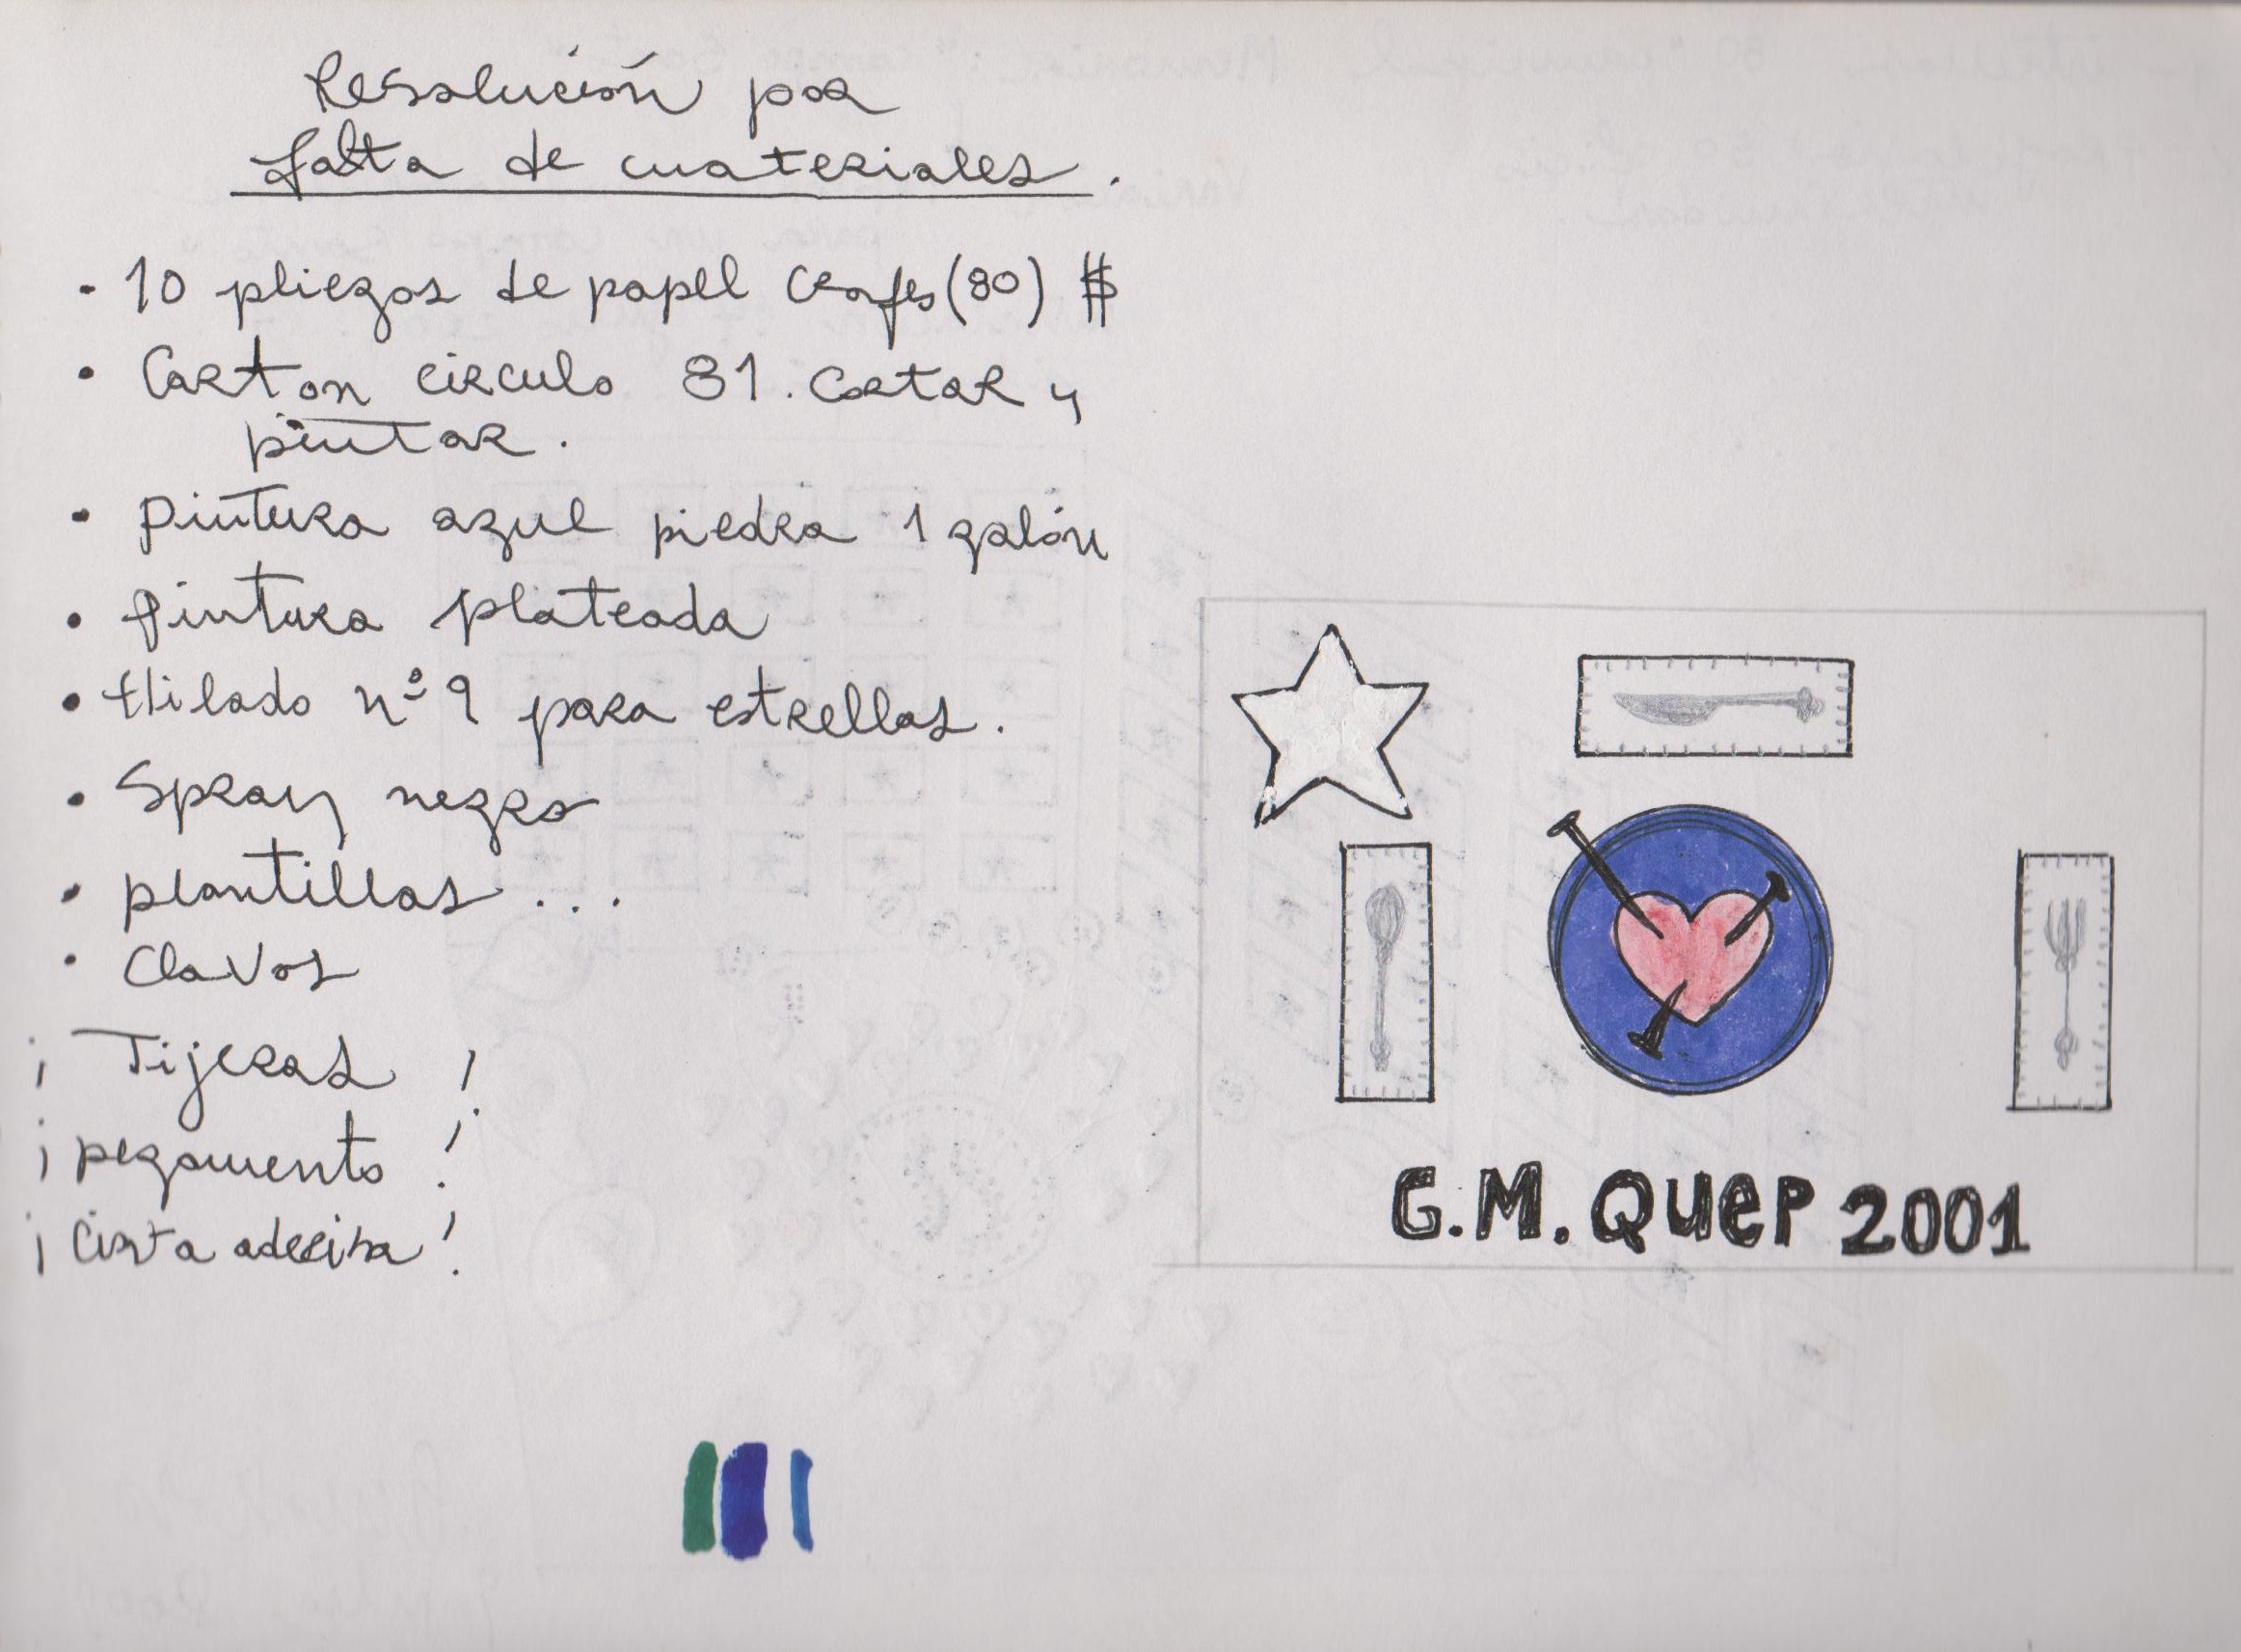 Resolución por
falta de materiales.
• 10 pliegos de papel (80) $
• Carton circulo 81. Cortar y
pintar.
• pintura azul piedra 1 galón
• pintura plateada
• Hilado nº 9 para estrellas.
• Spray negro
• plantillas...
• Clavos
¡Tijeras!
¡pegamento!
¡Cinta!
G.M. QUEP 2001